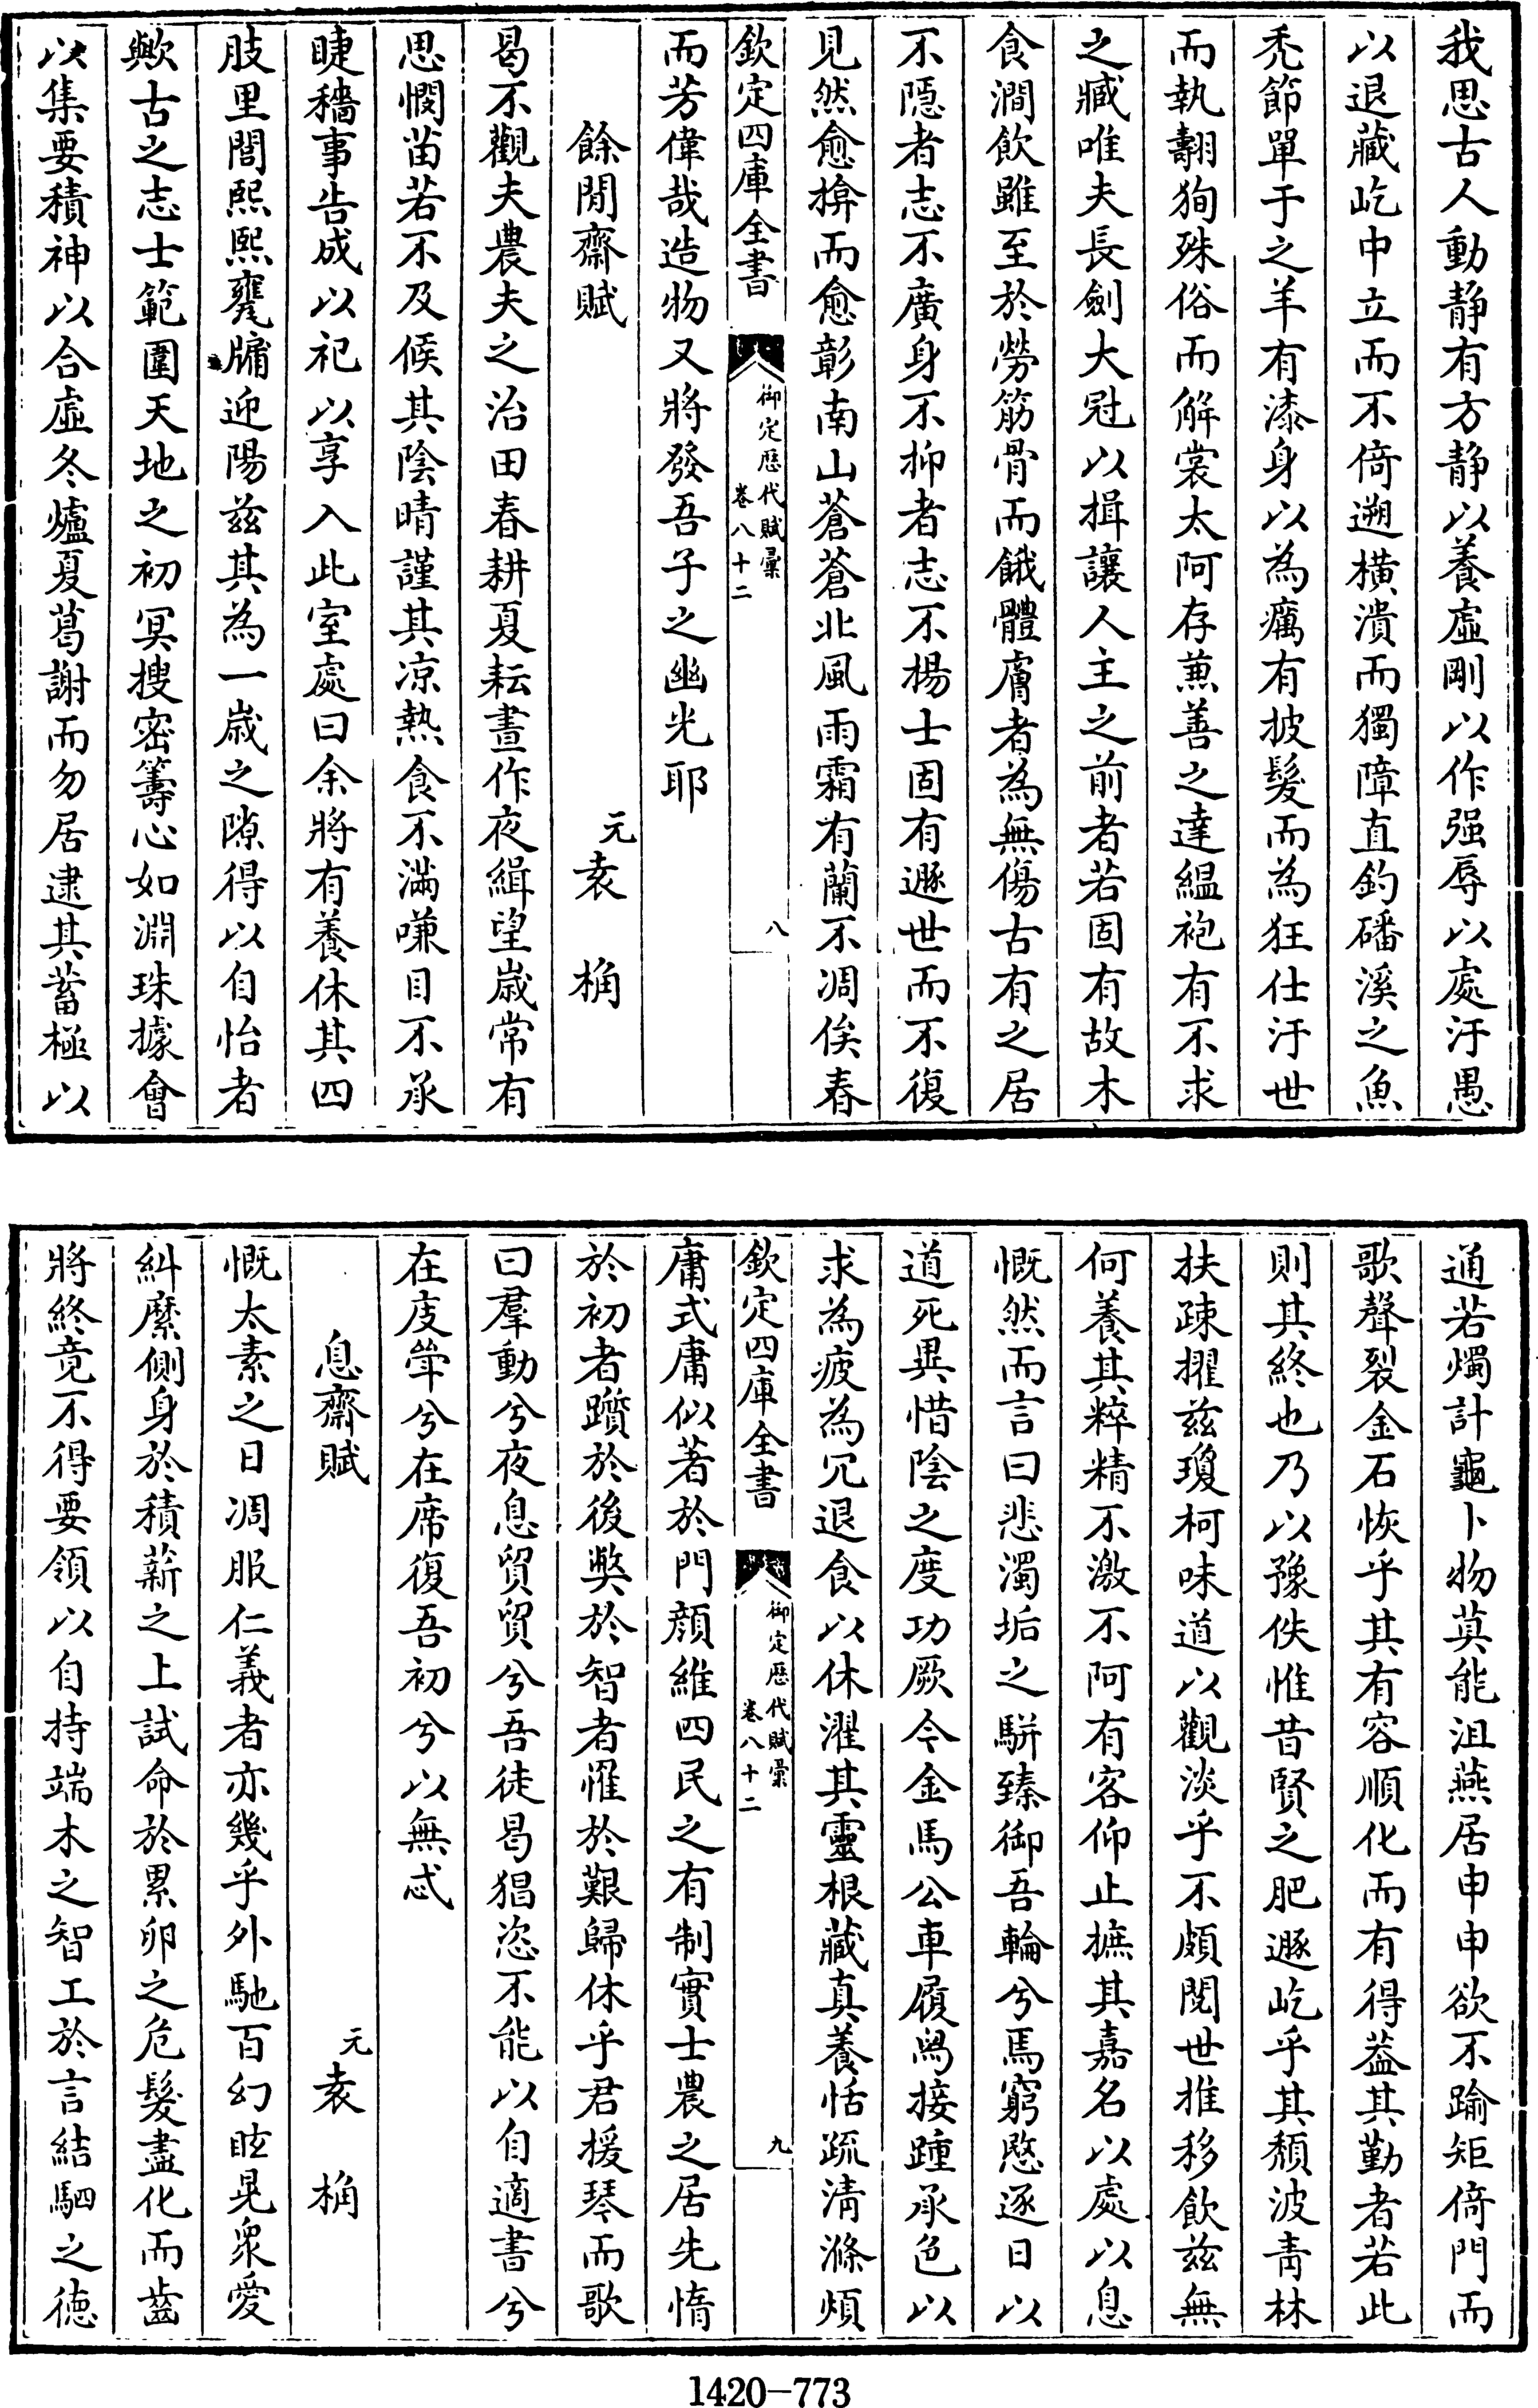 我思古人動静有方静以養虛剛以作强辱以處汙愚
以退藏屹中立而不倚遡橫潰而獨障直釣磻溪之魚
禿節單于之羊有漆身以為癘有披髮而為狂仕汙世
而執翿狥殊俗而解裳太阿存蒹善之達緼袍有不求
之臧唯夫長劍大冠以揖讓人主之前者若固有故木
食澗飲雖至於勞筋骨而餓體膚者為無傷古有之居
不隱者志不廣身不抑者志不楊士固有遯世而不復
見然愈揜而愈彰南山蒼蒼北風雨霜有蘭不凋俟春
欽定四庫全書
御定歴代賦彙
卷八十二
八
而芳偉哉造物又將發吾子之幽光耶
餘閒齋賦
元袁桷
曷不觀夫農夫之治田春耕夏耘晝作夜緝望歲常有
思憫苗若不及候其陰晴謹其凉熱食不滿嗛目不承
睫穡事告成以祀以享入此室處曰余將有養休其四
肢里閭熙熙甕牖迎陽兹其為一歲之隙得以自怡者
歟古之志士範圍天地之初冥搜密籌心如淵珠據會
以集要積神以合虛冬爐夏葛謝而勿居逮其蓄極以
通若燭計龜卜物莫能沮燕居申申欲不踰矩倚門而
歌聲裂金石恢乎其有容順化而有得葢其勤者若此
則其終也乃以豫佚惟昔賢之肥遯屹乎其頹波靑林
扶疎擢兹瓊柯味道以觀淡乎不頗閱世推移飲兹無
何養其粹精不激不阿有客仰止摭其嘉名以處以息
慨然而言曰悲濁垢之駢臻御吾輪兮馬窮愍逐日以
道死異惜陰之度功厥今金馬公車履舄接踵承色以
求為疲為冗退食以休濯其靈根藏真養恬疏淸滌煩
欽定四庫全書
御定歴代賦彙
卷八十二
九
庸式庸似著於門顔維四民之有制實士農之居先惰
於初者躓於後獘於智者惟於艱歸休乎君援琴而歌
曰羣動兮夜息貿貿兮吾徒曷猖恣不能以自適書兮
在庋斝兮在席復吾初兮以無忒
息齋賦
元袁桷
慨太素之日凋服仁義者亦幾乎外馳百幻眩晃衆愛
糾縻側身於積薪之上試命於累卵之危髮盡化而齒
將終竟不得要領以自持端木之智工於言結駟之德
1420-773